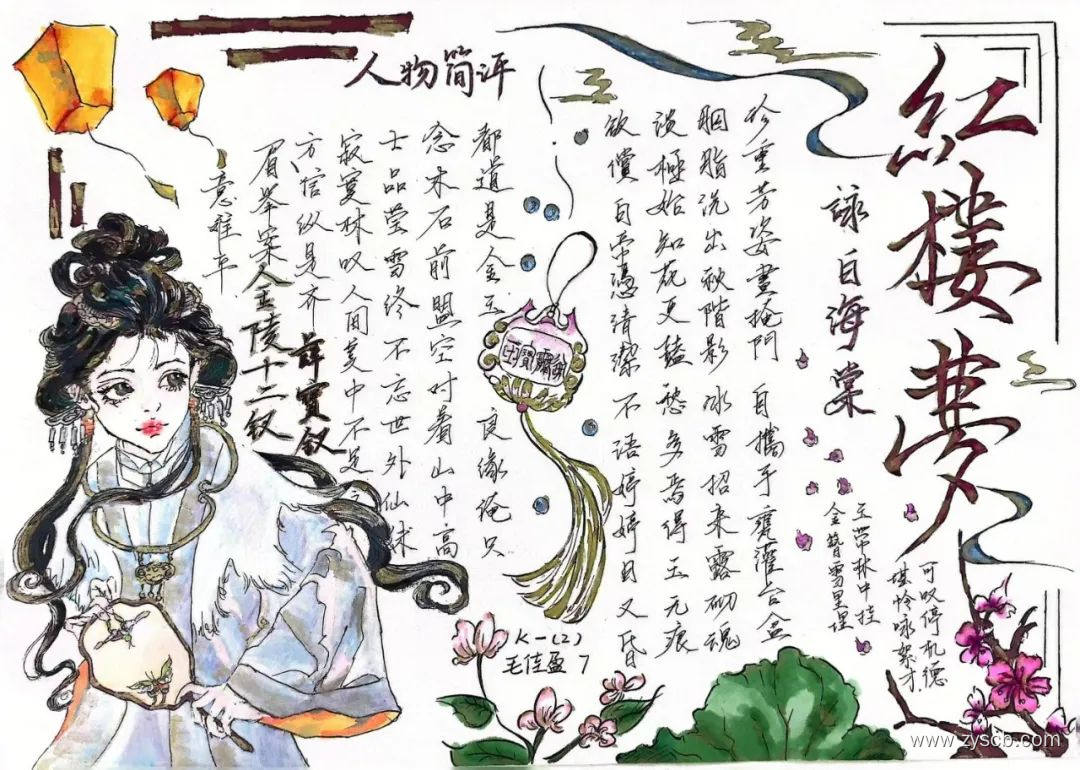 紅楼夢
詠白海棠
珍重芳姿晝掩門 自攜手甕灌苔盆
胭脂洗出秋階影 冰雪招来露砌魂
淡極始知花更艳 愁多焉得玉无痕
欲償白帝憑清潔 不語婷婷日又昏
可叹停机德
堪怜咏絮才
玉带林中挂
金簪雪里埋
人物简评
都道是金玉良缘俺只
念木石前盟空对着山中高
士晶莹雪终不忘世外仙姝
寂寞林叹人间美中不足今
方信纵是齐
眉举案
意难平
薛宝钗
金陵十二钗
K一(2)
毛佳盈 7
www.zyscb.com